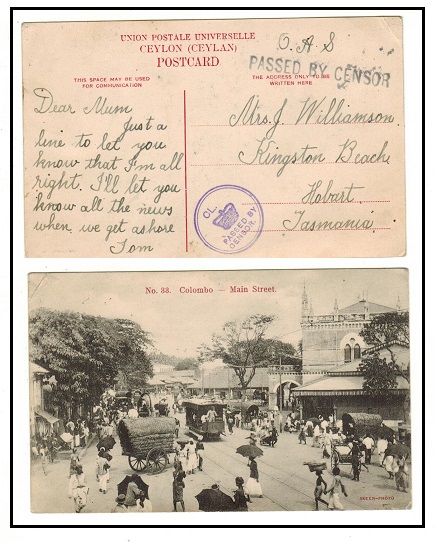 UNION POSTALE UNIVERSELLE
CEYLON (CEYLAN)
POSTCARD
O.A.S
PASSED BY CENSOR
THIS SPACE MAY BE USED
FOR COMMUNICATION
THE ADDRESS ONLY TO BE
WRITTEN HERE
Dear Mum
Just a
line to let you
know that I'm all
right. I'll let you
know all the news
when we get ashore
Tom
Mrs. J. Williamson.
Kingston Beach,
Hobart.
Tasmania.
CL.
PASSED BY
CENSOR.
No. 33. Colombo – Main Street.